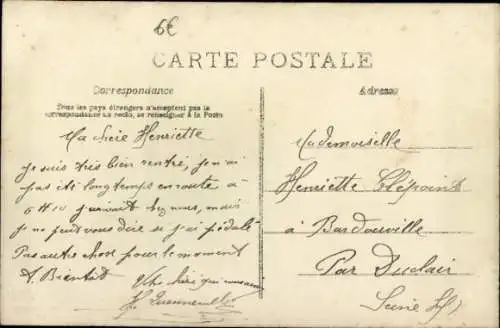 6€
CARTE POSTALE
Correspondance
Tous les pays étrangers n'acceptent pas la
correspondance au recto, se renseigner à la Poste
Ma chère Henriette
je suis très bien rentré, je n'ai
pas été longtemps en route à
6 H 10 j'arrivait chez nous, mais
je ne peut vous dire si j'ai pédalé
Pas autre chose pour le moment
A Bientôt
Un chéri qui vous aime
Adresse
Mademoiselle
Henriette
à Bardouville
Par Duclair
Seine Ifre